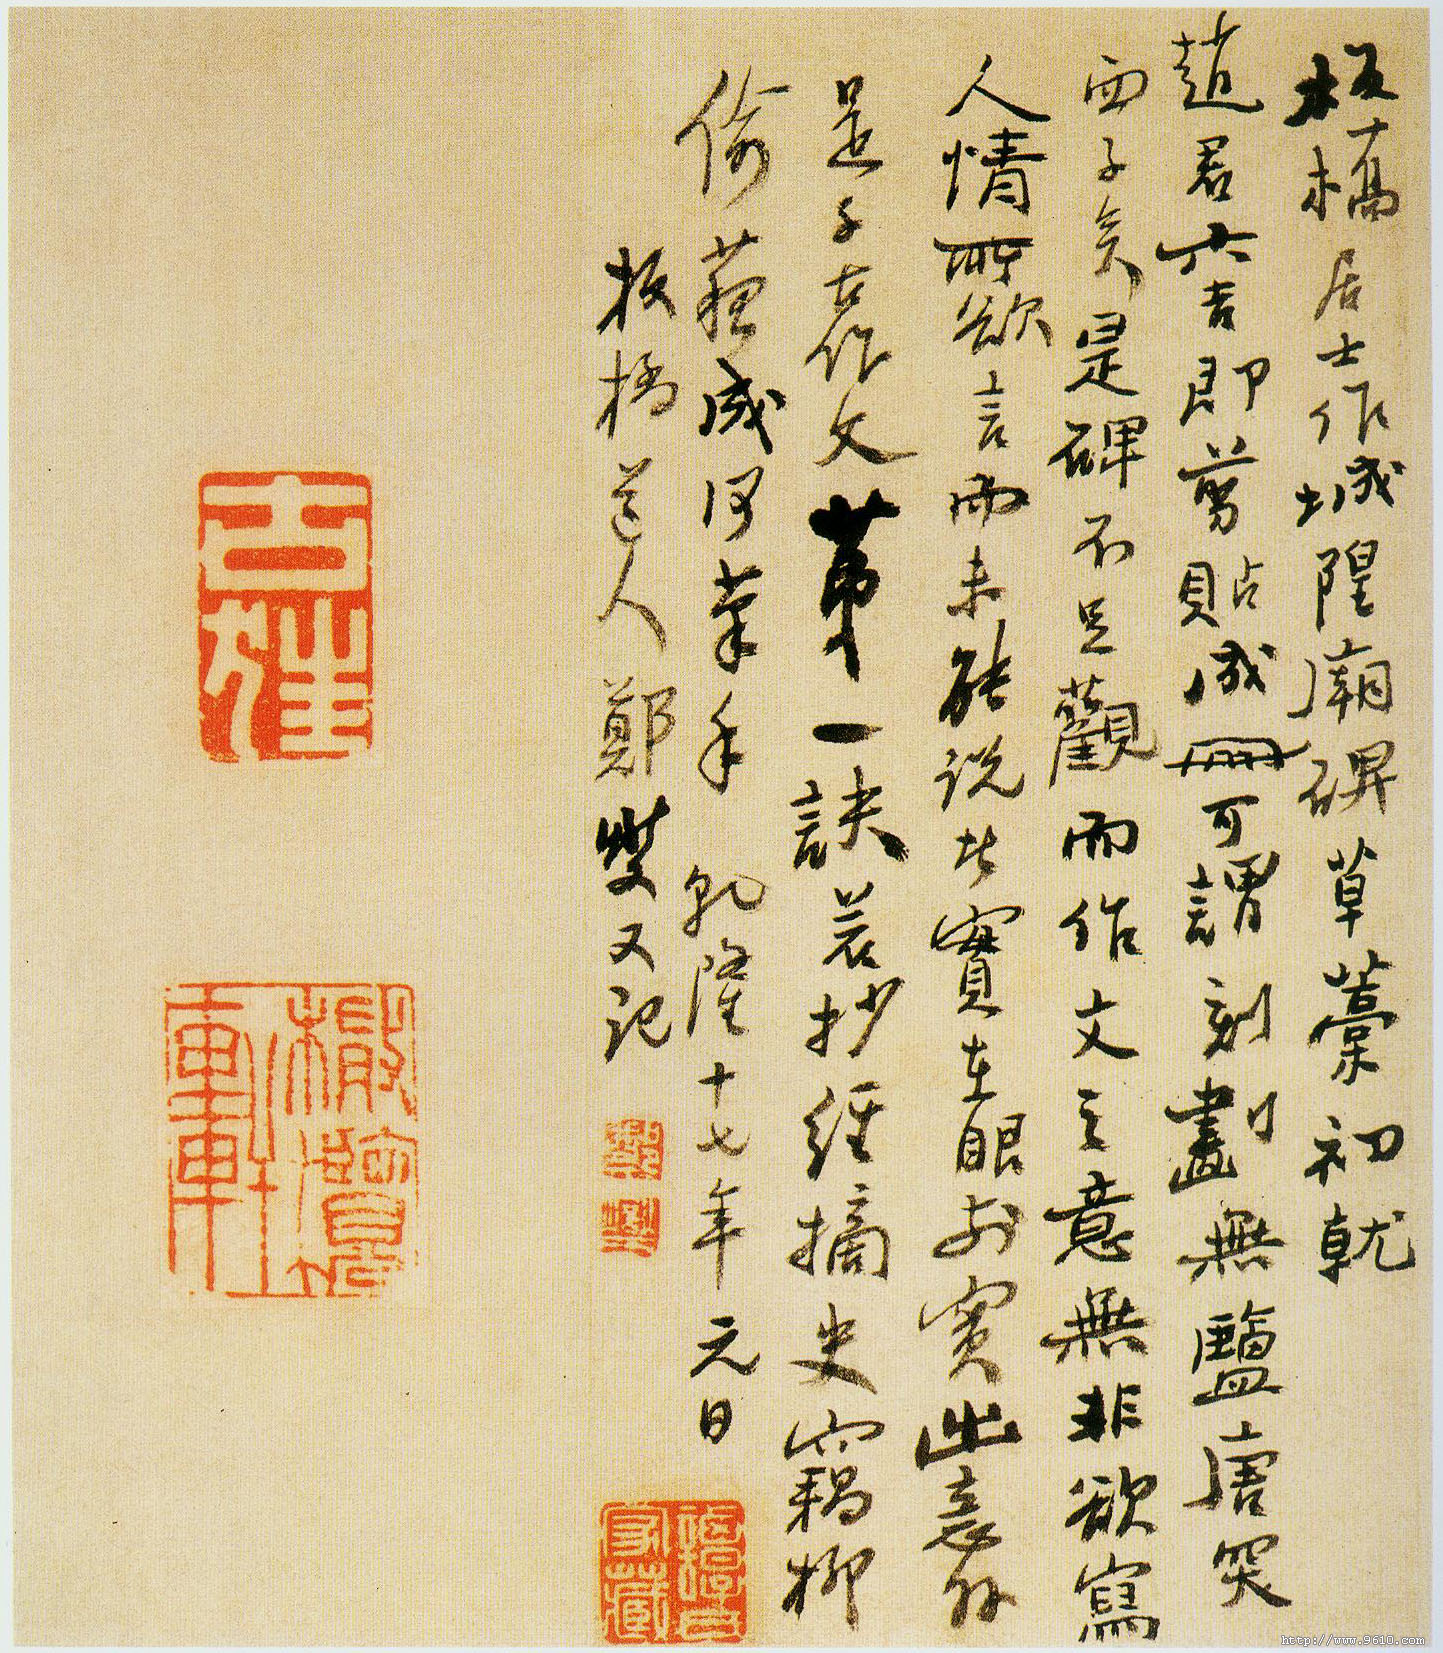 板橋居士作城隍廟碑草藁初就
趙君六吉即剪貼成冊可謂刻畫無鹽唐突
西子矣是碑不足觀而作文之意無非欲寫
人情所欲言而未能說此實在眼前實出意外
是千古作文第一訣若抄經摘史竊柳
偷蘇成何筆手乾隆十七年元日
板橋道人鄭燮又記
http://www.9610.com